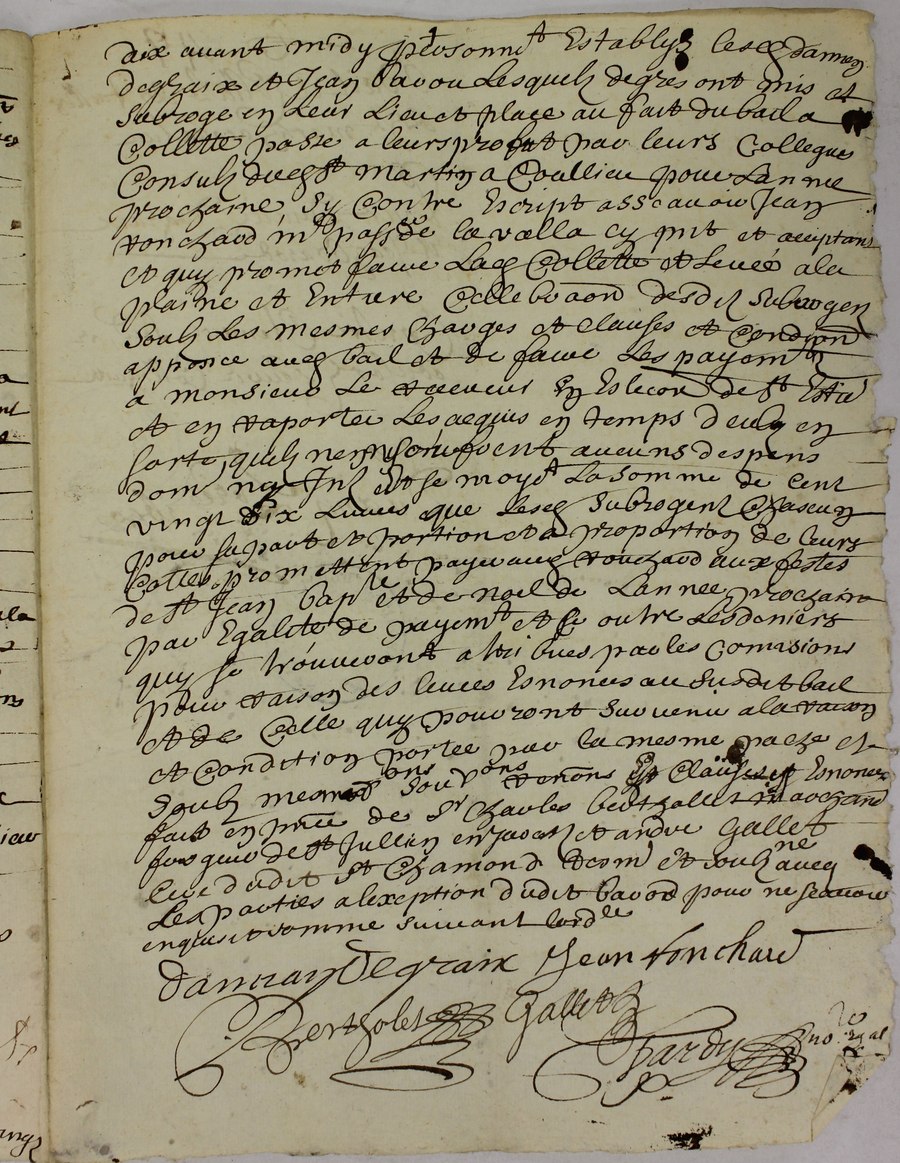 dix avant midy personnt Establys lesd damien
degraix et Jean bavou Lesquels de gres ont mis et
Subroge en Leur Lieu et place au fait du bail a
Collette passe a leurs profit par leurs Collegues
Consulz dud st martin a Coullieu pour Lannee
prochaine Sy Contre Escript asscavoir Jean
ronchard md de la valla cy pnt et acceptant
et quy promet faire Lad Collette et levée a la
plaine et Entiere desdit Subrogez
Soulz Les mesmes Charges et Clauses et Condition
apposee aud bail et de faire Les payemt
a monsieur Le receveur En Eslection de st Esti
et en raporter Les acquis en temps deub en
sorte quilz nen souffrent aucuns despens
dom ny Intz Et se moyt La somme de Cent
vingt dix Livres que lesd Subrogent Chascun
pour sa part et portion et a proportion de leurs
Colles promettent payer aud ronchard aux festes
de st Jean bapte et de noel de Lannee prochaine
par Egalite de payemt et Ce outre Les deniers
quy se trouveront attribues par les Comisions
pour raison des levees Esnonces au susdit bail
et de Celle quy pourront survenir a la raison
et Condition portee par la mesme pache et
Soulz Clauses Esnonces
fait en pnce de Sr Charles berthollet marchand
de st Jullien en Jarez et andre Gallet
dudit st Chamond tesm et soubzne avecq
Les parties a lexeption dudit bavou pour ne scavoir
enquis et somme suivant lordce
damian Degraix Jean ronchard
Bertholet Gallet
hardy no re ral